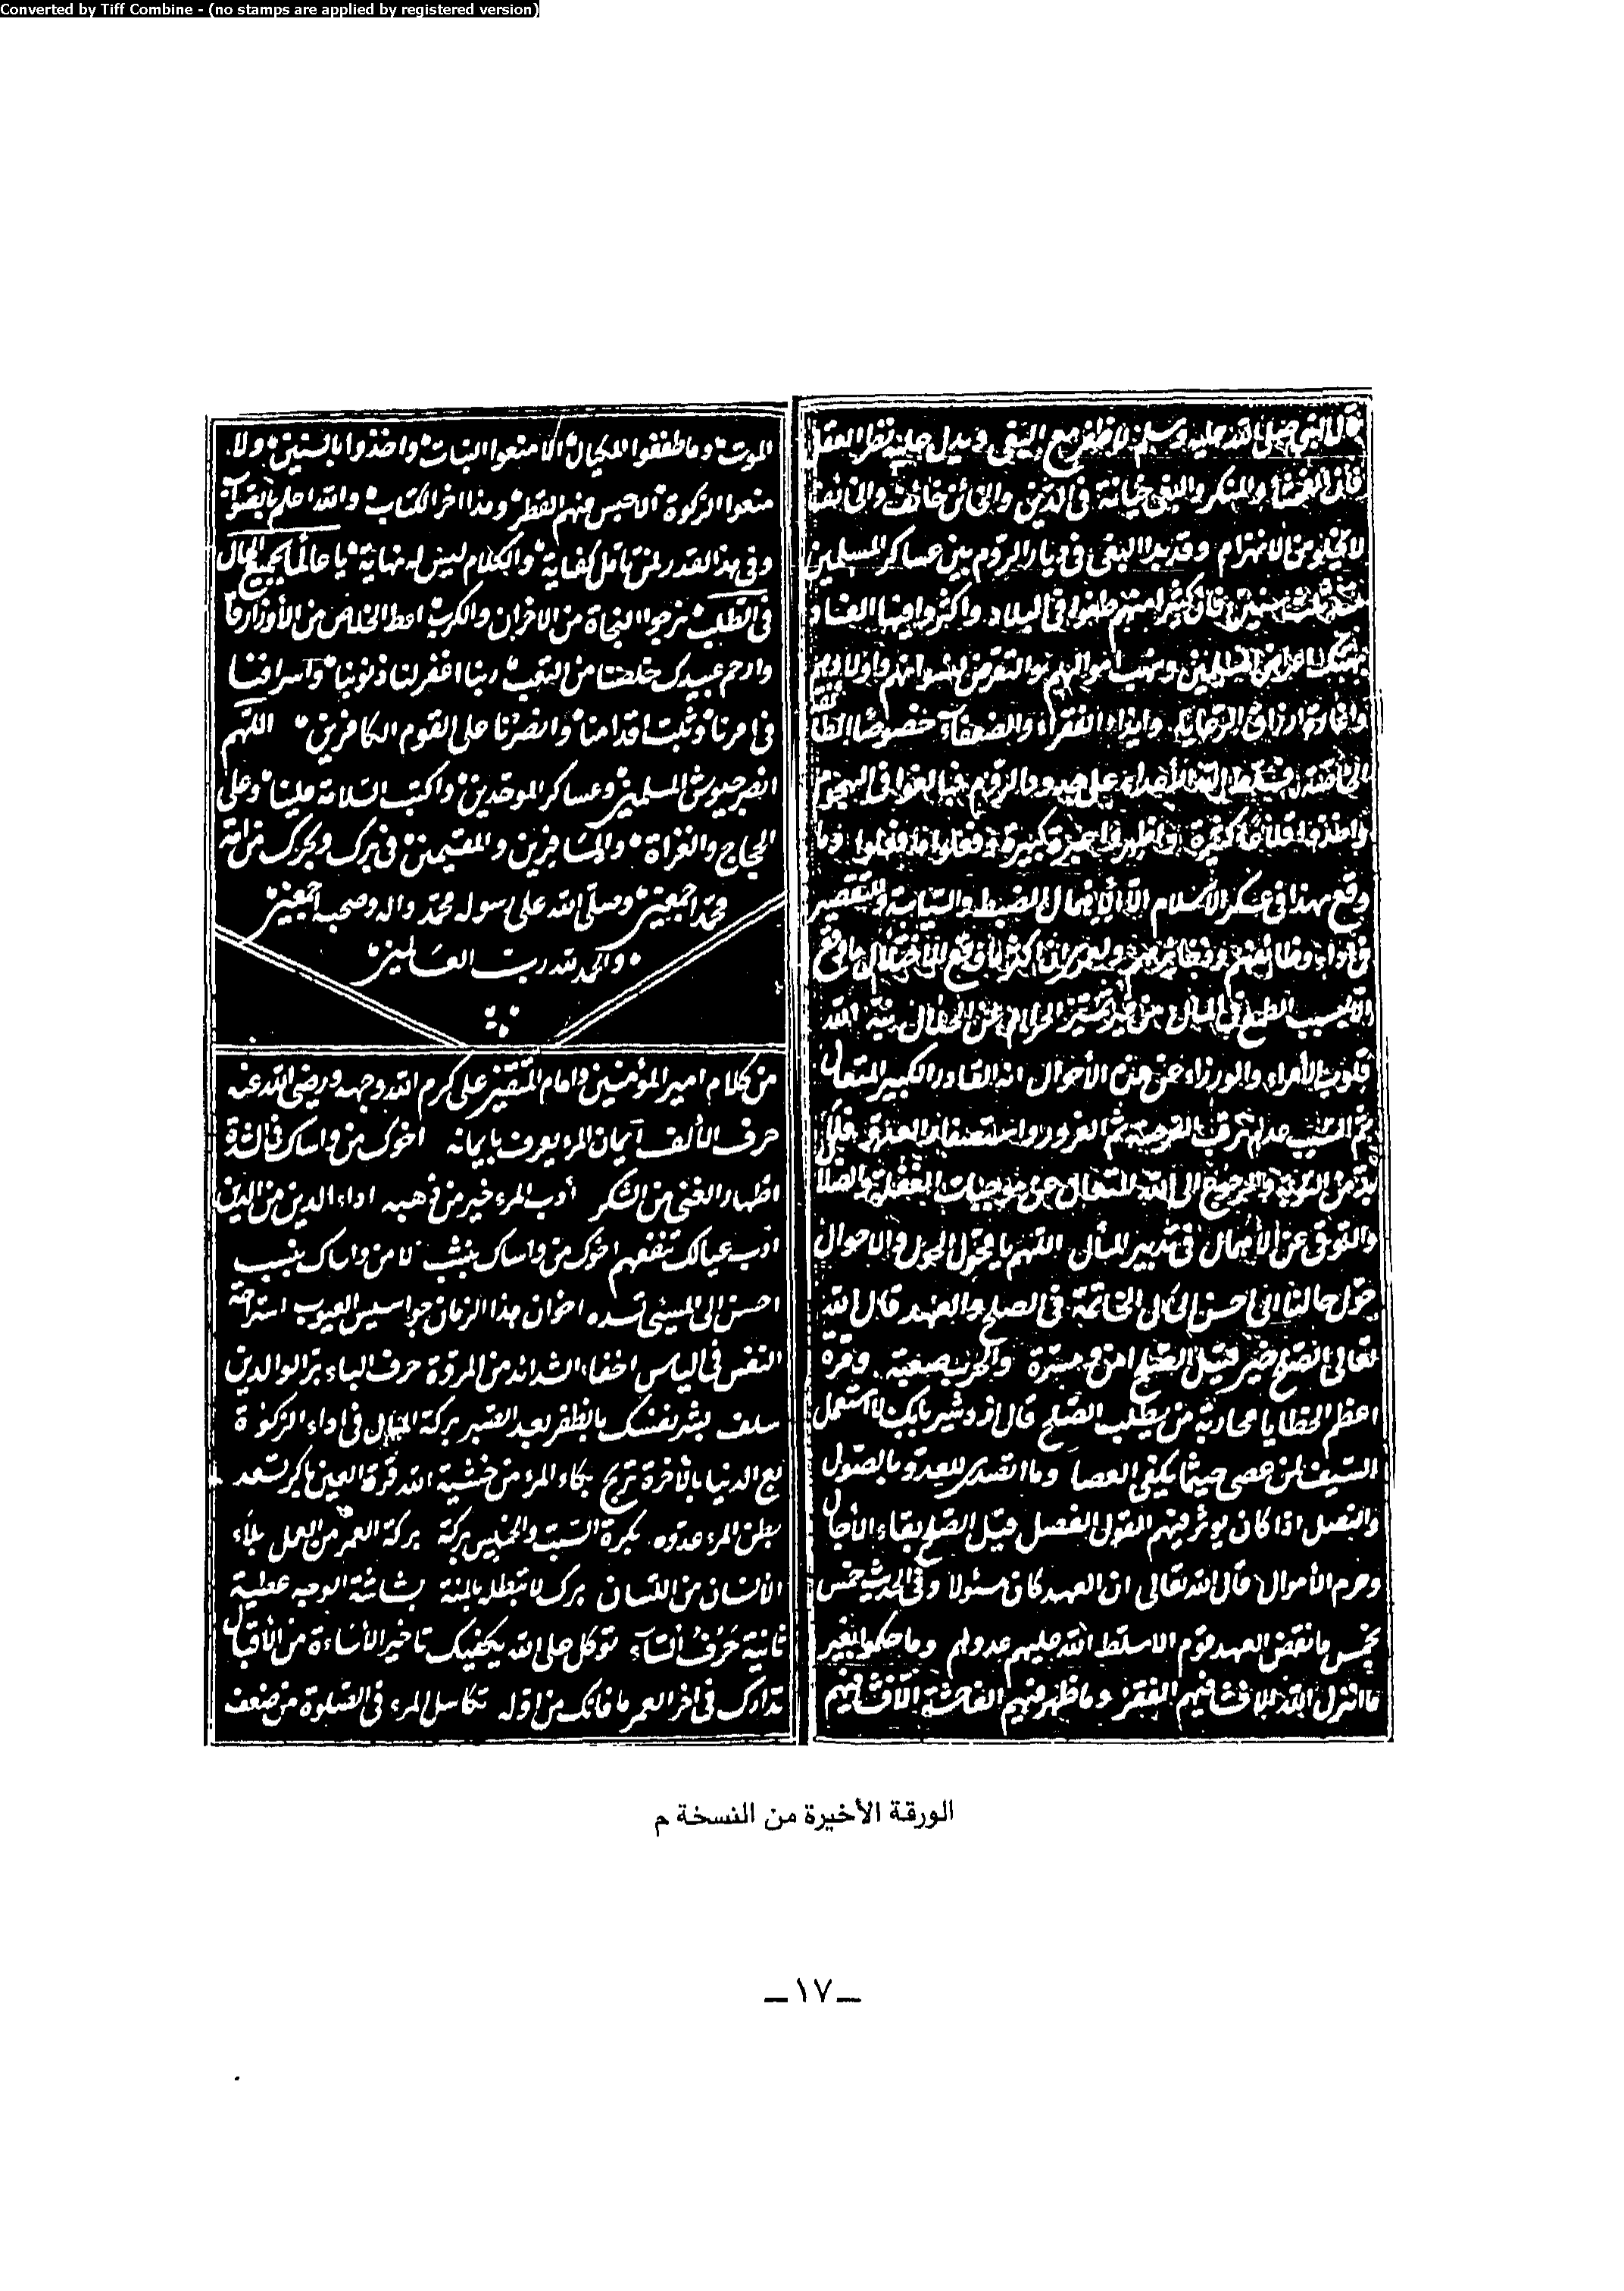 Converted by Tiff Combine - (no stamps are applied by registered version)
قال النبي صلى الله عليه وسلم لا ظفر مع البغي ويدل عليه نظر العقل
فان الفحشا والمنكر والبغي خيانة في الدين والخائن خائف والخائف
لا يخلو من الانهزام وقد بدا البغي في ديار الروم بين عساكر المسلمين
منذ ثلث سنين فان كثيرا منهم طغوا في البلاد واكثروا فيها الفساد
المسلمين ونهب اموالهم والتعرض لنسوانهم واولادهم
وغارة ارزاق الرعايا وايذاء الفقراء والضعفاء خصوصا الطائفة
الاعداء على حدود الروم فبالغوا في الهجوم
واخذوا قلاعا كثيرة كبيرة وفعلوا ما فعلوا وما
وقع هذا في عسكر الاسلام الا لاهمال الضبط والسياسة والتقصير
في اداء وظائفهم اكثر ما وقع الاختلال ما وقع
الا بسبب الطمع في المال من غير تمييز الحرام عن الحلال نبه الله
قلوب الأمراء والوزراء عن هذه الأحوال انه القادر الكبير المتعال
ثم السبب عدم ترقب الفرصة ثم الغرور واستصغار العدو فلا
بد من التوبة والرجوع الى الله المتعال عن موجبات الغفلة
والتوقي عن الاهمال في تدبير المآل اللهم يا محول الحول والاحوال
حول حالنا الى احسن الحال الخاتمة في الصلح والعهد قال الله
تعالى الصلح خير قيل الصلح امن ومسرة والحرب صعبة ومرة
اعظم الخطايا محاربة من يطلب الصلح قال ازدشير بابك لا استعمل
السيف لمن عصى حيثما يكفي العصا وما للعدو بالصول
والنصل اذا كان يوثر فيهم القول الفصل قيل الصلح بقاء الآجال
وحرم الأموال قال الله تعالى ان العهد كان مسئولا وفي الحديث خمس
بخمس ما نقض العهد قوم الا سلط الله عليهم عدوهم وما حكموا بغير
ما انزل الله الا فشا فيهم الفقر وما ظهر فيهم الفاحشة الا فشا فيهم
الموت وما طففوا المكيال الا منعوا النبات واخذوا بالسنين ولا
منعوا الزكوة الا حبس عنهم القطر وهذا اخر الكتاب والله اعلم بالصواب
وفي هذا القدر لمن تامل كفاية والكلام ليس له نهاية يا عالما بجميع الحال
في الطلب نرجو النجاة من الاحزان والكرب اعط الخلاص من الأوزار
وارحم عبيدك خلصنا من التعب ربنا اغفر لنا ذنوبنا واسرافنا
في امرنا وثبت اقدامنا وانصرنا على القوم الكافرين اللهم
انصر جيوش المسلمين وعساكر الموحدين واكتب السلامة علينا وعلى
الحجاج والغزاة والمسافرين والمقيمين في برك وبحرك من امة
محمد اجمعين وصلى الله على رسوله محمد واله وصحبه اجمعين
والحمد لله رب العالمين
من كلام امير المؤمنين وامام المتقين علي كرم الله وجهه ورضي الله عنه
حرف الألف ايمان المرء يعرف بايمانه اخوك من واساك في الشدة
اظهار الغنى من الشكر أدب المرء خير من ذهبه اداء الدين من الدين
أدب عيالك تنفعهم اخوك من واساك بنشب لا من واساك بنسب
احسن الى المسيئ تسده اخوان هذا الزمان جواسيس العيوب استراحة
النفس في الياس اخفاء الشدائد من المروة حرف الباء بر الوالدين
سلف بشر نفسك بالظفر بعد الصبر بركة المال في اداء الزكوة
بع الدنيا بالآخرة تربح بكاء المرء من خشية الله قرة العين باكر تسعد
بطن المرء عدوه بكرة السبت والخميس بركة بركة العمر من العمل بلاء
الأنسان من اللسان برك لا تبطله بالمنة بشاشة الوجه عطية
ثانية حرف التاء توكل على الله يكفيك تاخير الأساءة من الأقبال
تدارك في اخر العمر ما فاتك من اوله تكاسل المرء في الصلوة من ضعف
الورقة الأخيرة من النسخة م
– ١٧ –